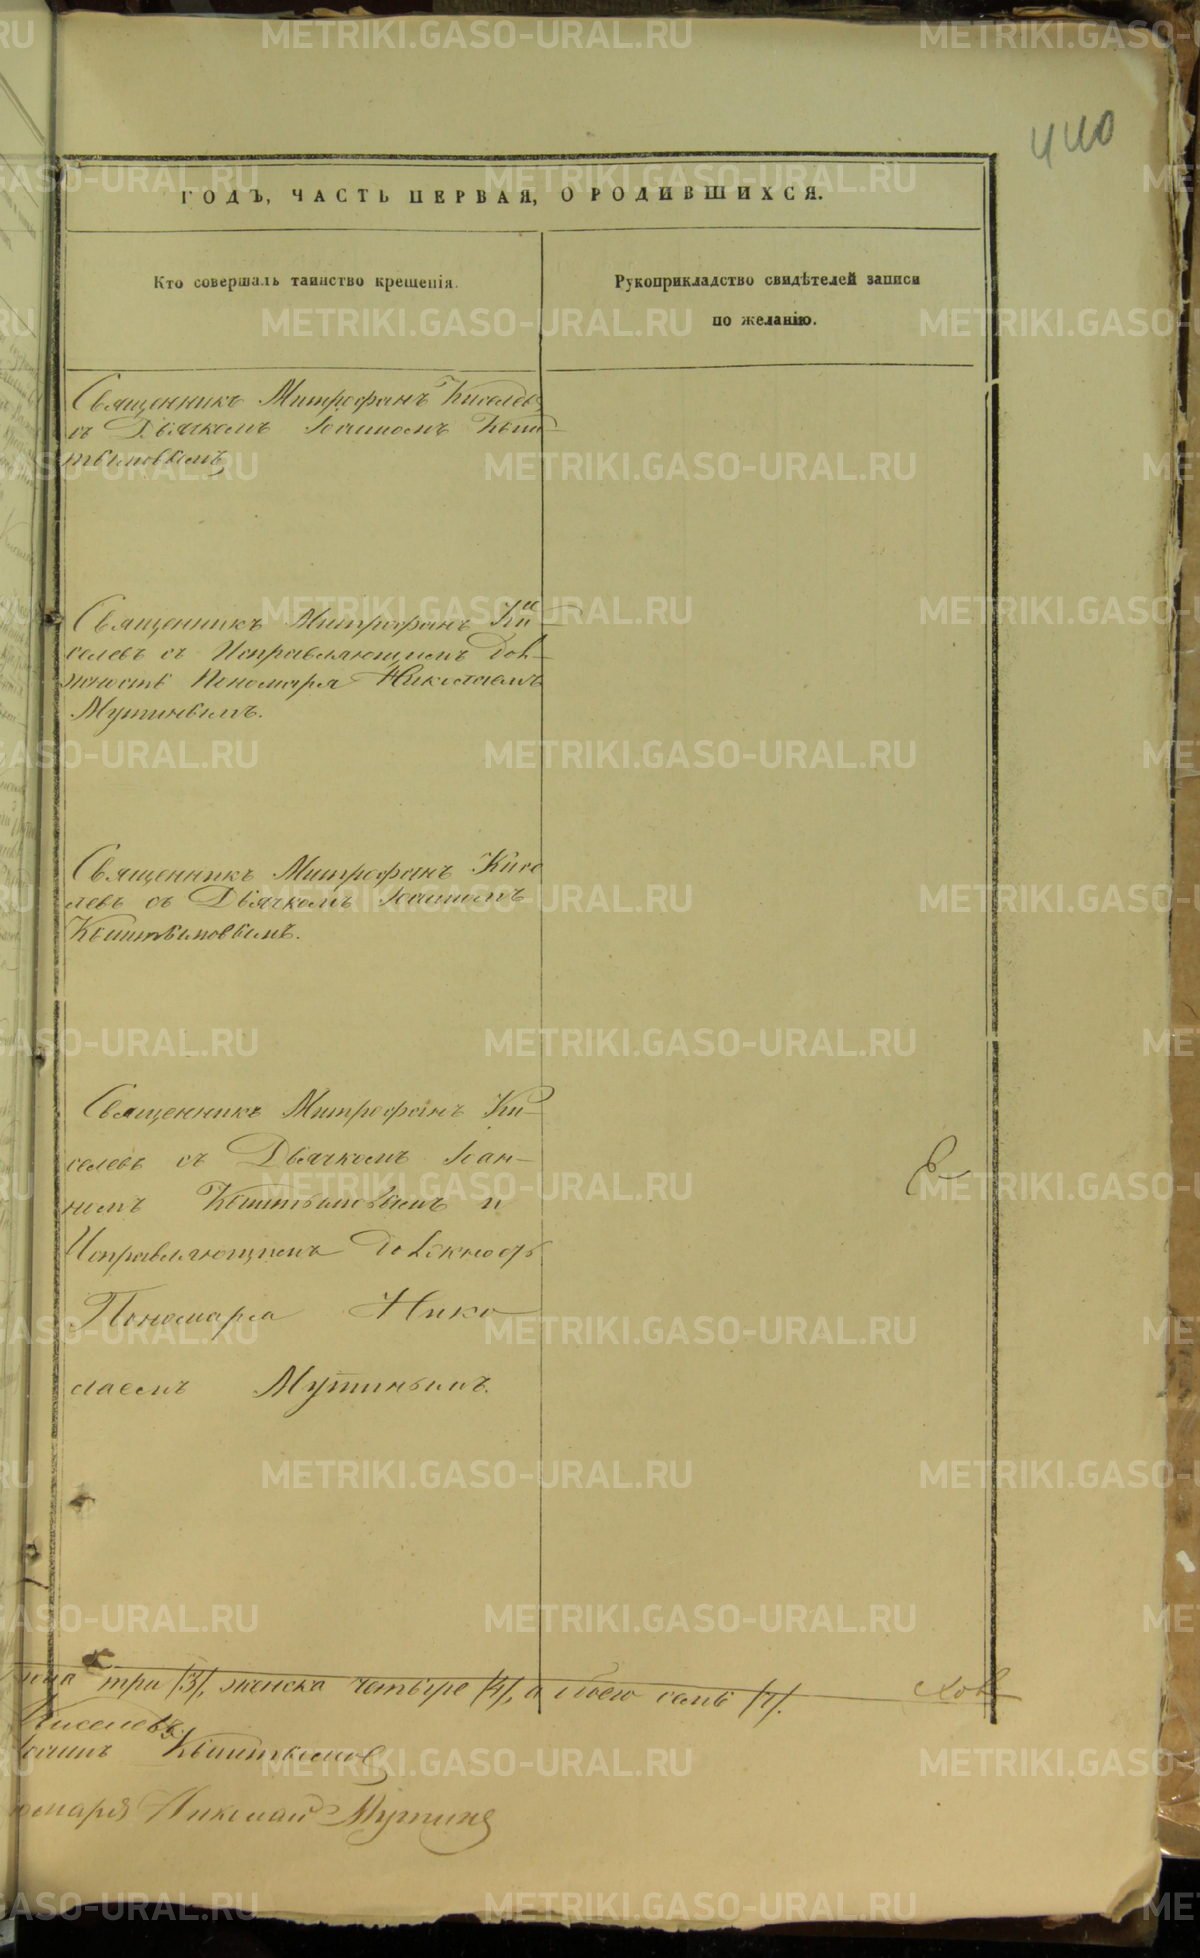 440
ГОДЪ, ЧАСТЬ ПЕРВАЯ, О РОДИВШИХСЯ.
Кто совершалъ таинство крещенія.
Рукоприкладство свидѣтелей записи
по желанію.
Священникъ Митрофанъ Киселевъ
съ Дьячкомъ Іоанномъ Кыш-
тымовымъ
Священникъ Митрофанъ Ки-
селевъ съ Исправляющимъ Дол-
жность Пономаря Николаемъ
Мутинымъ.
Священникъ Митрофанъ Кисе
левъ съ Дьячкомъ Іоанномъ
Кыштымовымъ.
Священникъ Митрофанъ Ки-
селевъ съ Дьячкомъ Іоан-
номъ Кыштымовымъ и
Исправляющимъ Должность
Пономаря Нико
лаемъ Мутинымъ.
три /3/, женска четыре /4/, а обоего семь /7/.
Киселевъ.
Іоаннъ Кыштымовъ
Николай Мутинъ
METRIKI.GASO-URAL.RU